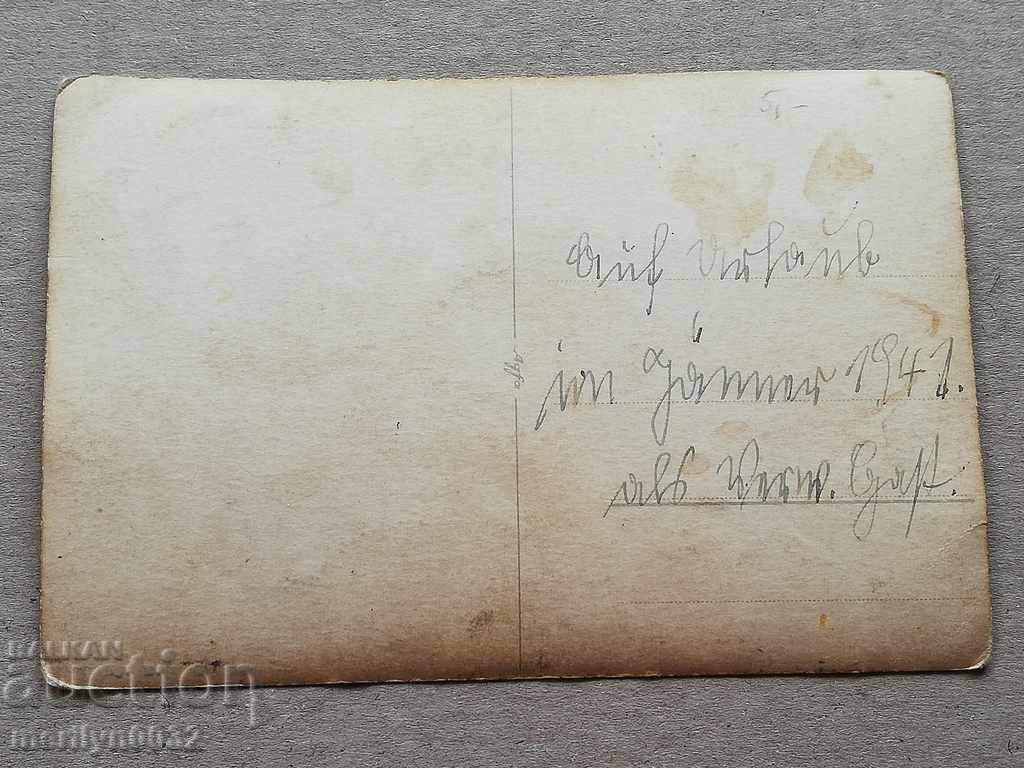 5,-
Auf Urlaub
im Jänner 1941.
als Verw. Gast.
Agfa
BALKAN
auction
merilyn0632